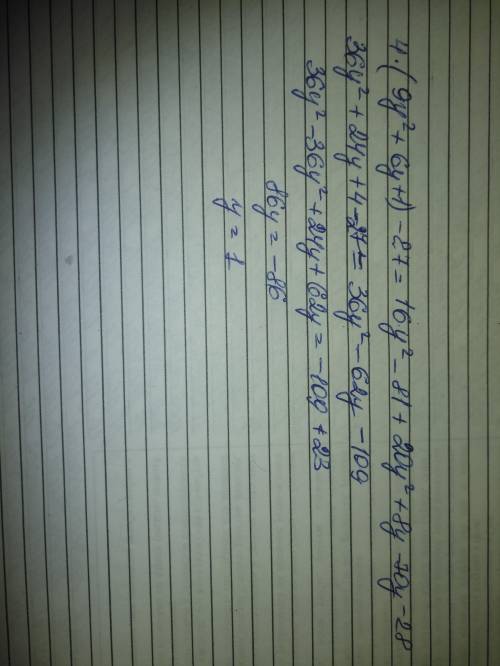 4·(9y²+6y+1)-27=16y²-81+20y²+8y-70y-28
36y²+24y+4-27=36y²-62y-109
36y²-36y²+24y+62y=-109+23
86y=-86
y=1